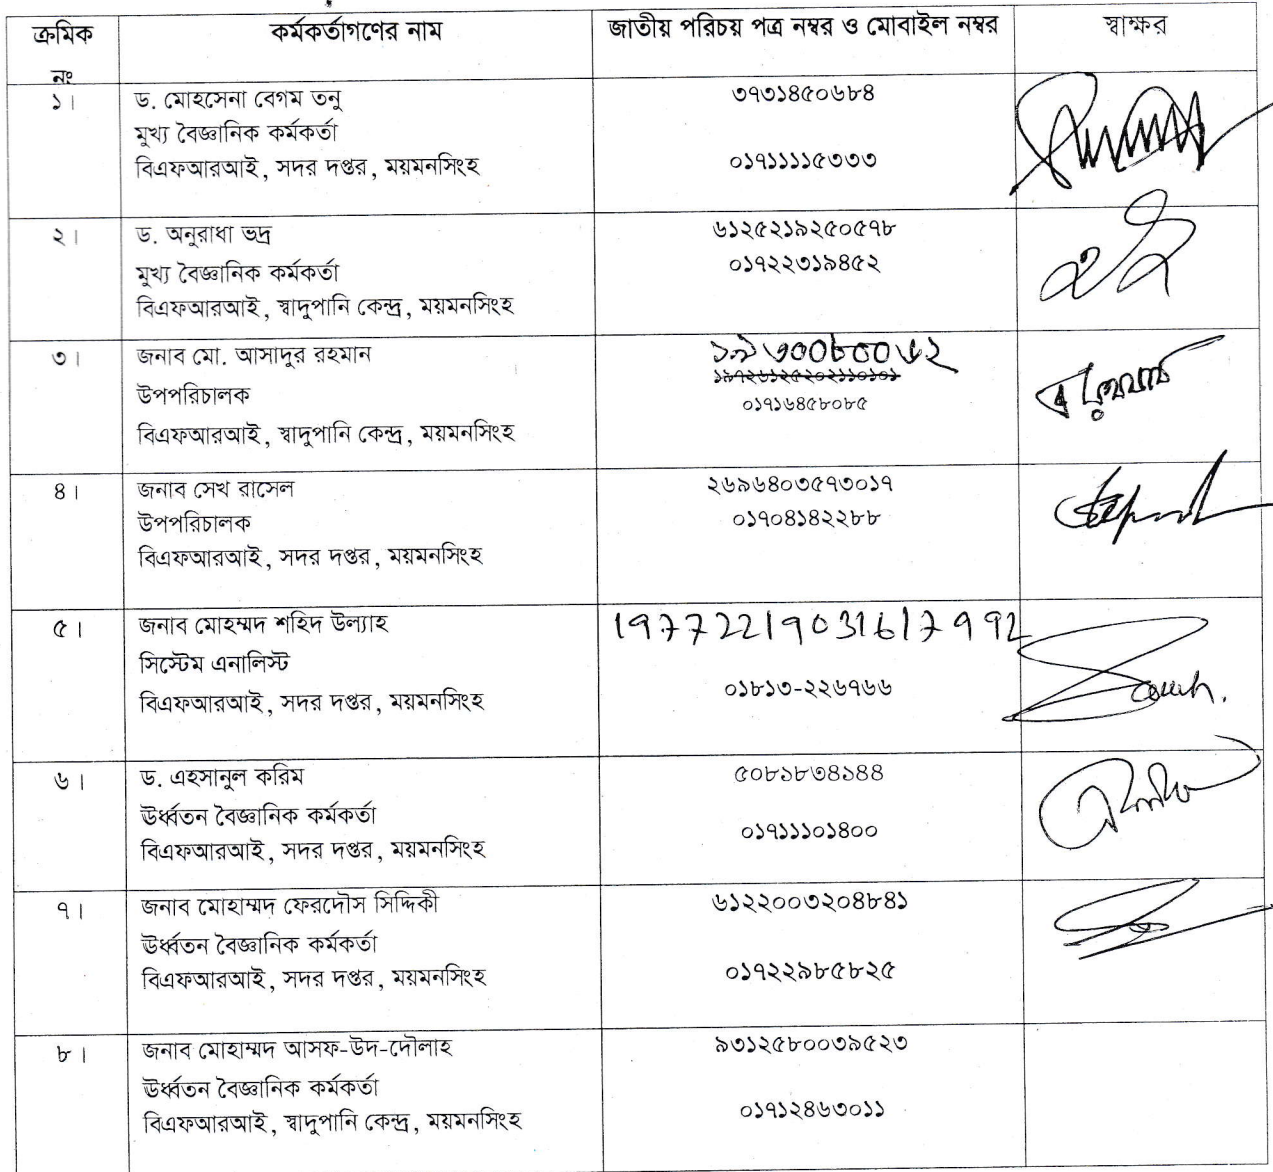 ক্রমিক নং
কর্মকর্তাগণের নাম
জাতীয় পরিচয় পত্র নম্বর ও মোবাইল নম্বর
স্বাক্ষর
১।
ড. মোহসেনা বেগম তনু
মুখ্য বৈজ্ঞানিক কর্মকর্তা
বিএফআরআই, সদর দপ্তর, ময়মনসিংহ
৩৭৩১৪৫০৬৮৪
০১৭১১১১৫৩৩৩
২।
ড. অনুরাধা ভদ্র
মুখ্য বৈজ্ঞানিক কর্মকর্তা
বিএফআরআই, স্বাদুপানি কেন্দ্র, ময়মনসিংহ
৬১২৫২১৯২৫০৫৭৮
০১৭২২৩১৯৪৫২
৩।
জনাব মো. আসাদুর রহমান
উপপরিচালক
বিএফআরআই, স্বাদুপানি কেন্দ্র, ময়মনসিংহ
০১৭১৬৪৫৮০৮৫
৪।
জনাব সেখ রাসেল
উপপরিচালক
বিএফআরআই, সদর দপ্তর, ময়মনসিংহ
২৬৯৬৪০৩৫৭৩০১৭
০১৭০৪১৪২২৮৮
৫।
জনাব মোহম্মদ শহিদ উল্যাহ
সিস্টেম এনালিস্ট
বিএফআরআই, সদর দপ্তর, ময়মনসিংহ
19772219031617992
০১৮১৩-২২৬৭৬৬
৬।
ড. এহসানুল করিম
ঊর্ধ্বতন বৈজ্ঞানিক কর্মকর্তা
বিএফআরআই, সদর দপ্তর, ময়মনসিংহ
৫০৮১৮৩৪১৪৪
০১৭১১১০১৪০০
৭।
জনাব মোহাম্মদ ফেরদৌস সিদ্দিকী
ঊর্ধ্বতন বৈজ্ঞানিক কর্মকর্তা
বিএফআরআই, সদর দপ্তর, ময়মনসিংহ
৬১২২০০৩২০৪৮৪১
০১৭২২৯৮৫৮২৫
৮।
জনাব মোহাম্মদ আসফ-উদ-দৌলাহ
ঊর্ধ্বতন বৈজ্ঞানিক কর্মকর্তা
বিএফআরআই, স্বাদুপানি কেন্দ্র, ময়মনসিংহ
৯৩১২৫৮০০৩৯৫২৩
০১৭১২৪৬৩০১১